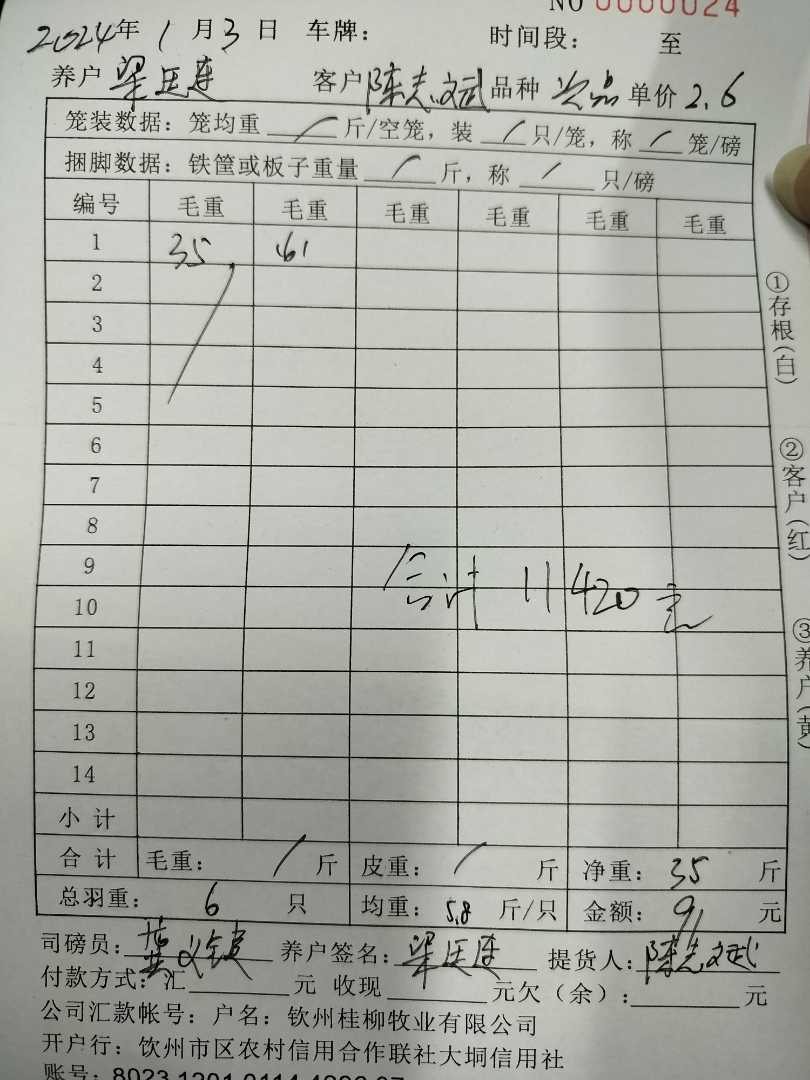 NO 0000024
2024年 1 月 3 日 车牌： 时间段： 至
养户 梁廷连 客户 陈志斌 品种 次品 单价 2.6
笼装数据：笼均重 / 斤/空笼，装 / 只/笼，称 / 笼/磅
捆脚数据：铁筐或板子重量 / 斤，称 / 只/磅
编号 毛重 毛重 毛重 毛重 毛重 毛重
1 35 61
2
3
4
5
6
7
8
9
合计 11420元
10
11
12
13
14
小计
合计 毛重： / 斤 皮重： / 斤 净重： 35 斤
总羽重： 6 只 均重： 5.8 斤/只 金额： 91 元
司磅员： 养户签名：梁廷连 提货人：陈志斌
付款方式：汇 元 收现 元欠（余）： 元
公司汇款帐号：户名：钦州桂柳牧业有限公司
开户行：钦州市区农村信用合作联社大垌信用社
账号：8023 1201 0114 4826 07
①存根(白)
②客户(红)
③养户(黄)